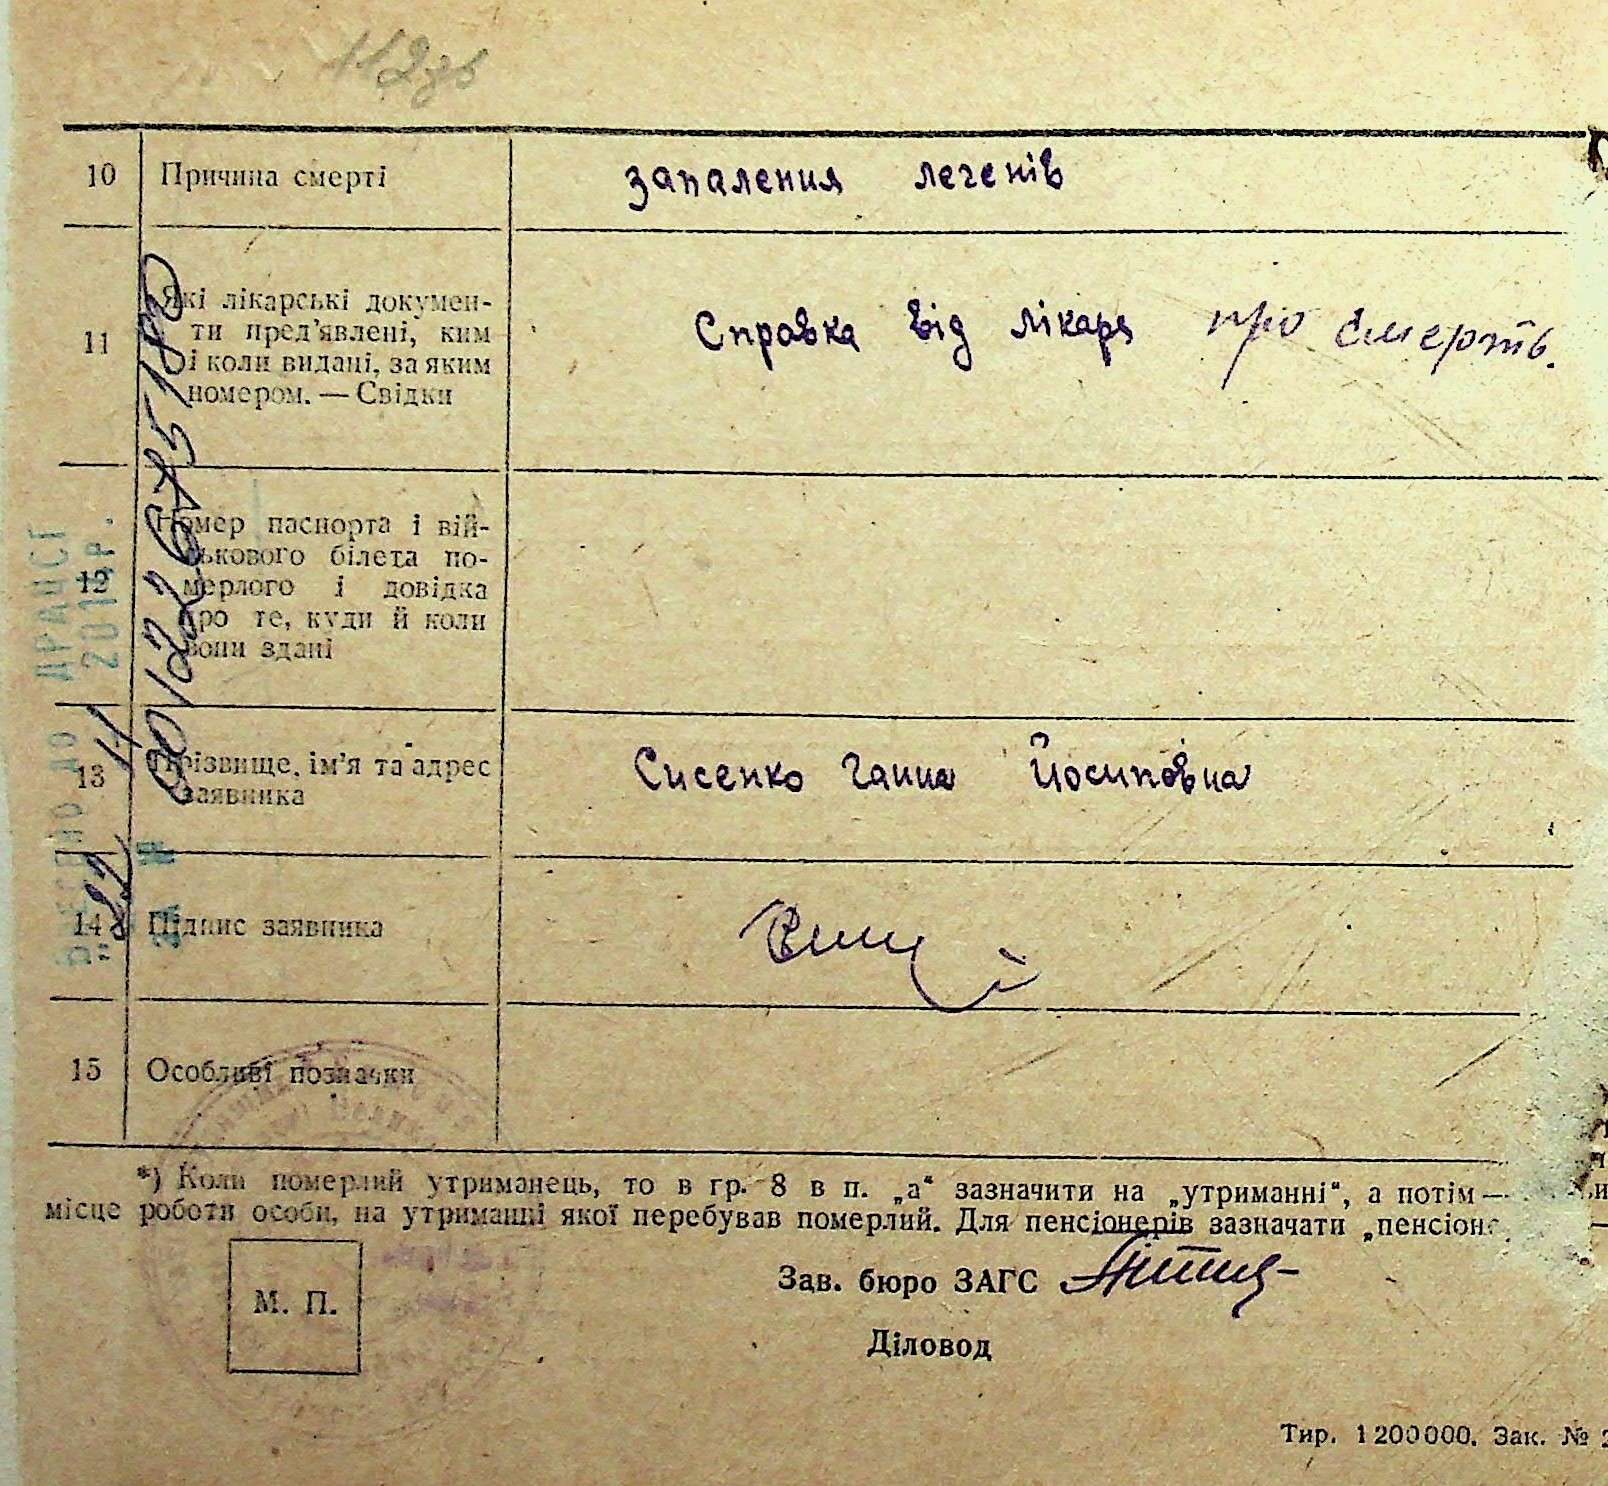 112зв
10 Причина смерті запалення легенів
11 Які лікарські докумен-
ти пред'явлені, ким
і коли видані, за яким
номером. — Свідки
Справка від лікаря про смерть.
12 Номер паспорта і вій-
ськового білета по-
мерлого і довідка
про те, куди й коли
вони здані
13 Прізвище, ім'я та адрес
заявника
Сисенко Ганна Йосиповна
14 Підпис заявника
15 Особливі позначки
*) Коли померлий утриманець, то в гр. 8 в п. „а“ зазначити на „утриманні“, а потім —
місце роботи особи, на утриманні якої перебував померлий. Для пенсіонерів зазначати „пенсіоне
М. П.
Зав. бюро ЗАГС
Діловод
Тир. 1 200 000. Зак. № 2
ДО ДРАЦСГ
22 11 201 р.
ЗА №
00122675180